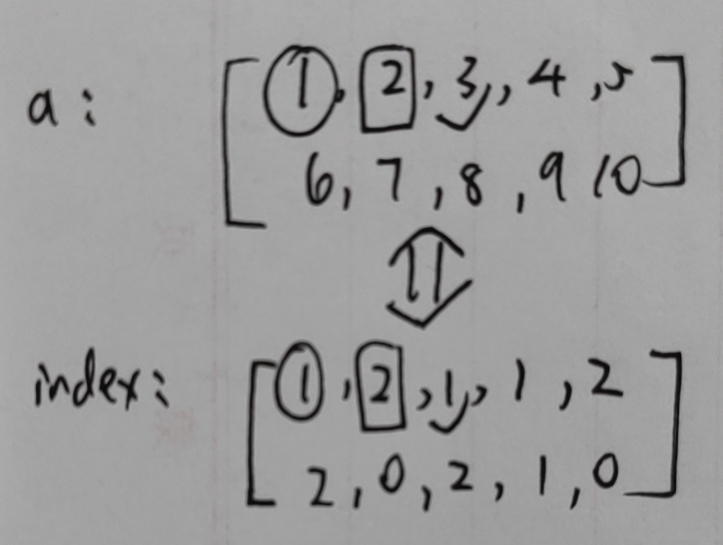 a: [1, 2, 3, 4, 5
6, 7, 8, 9 10]
index: [1, 2, 1, 1, 2
2, 0, 2, 1, 0]